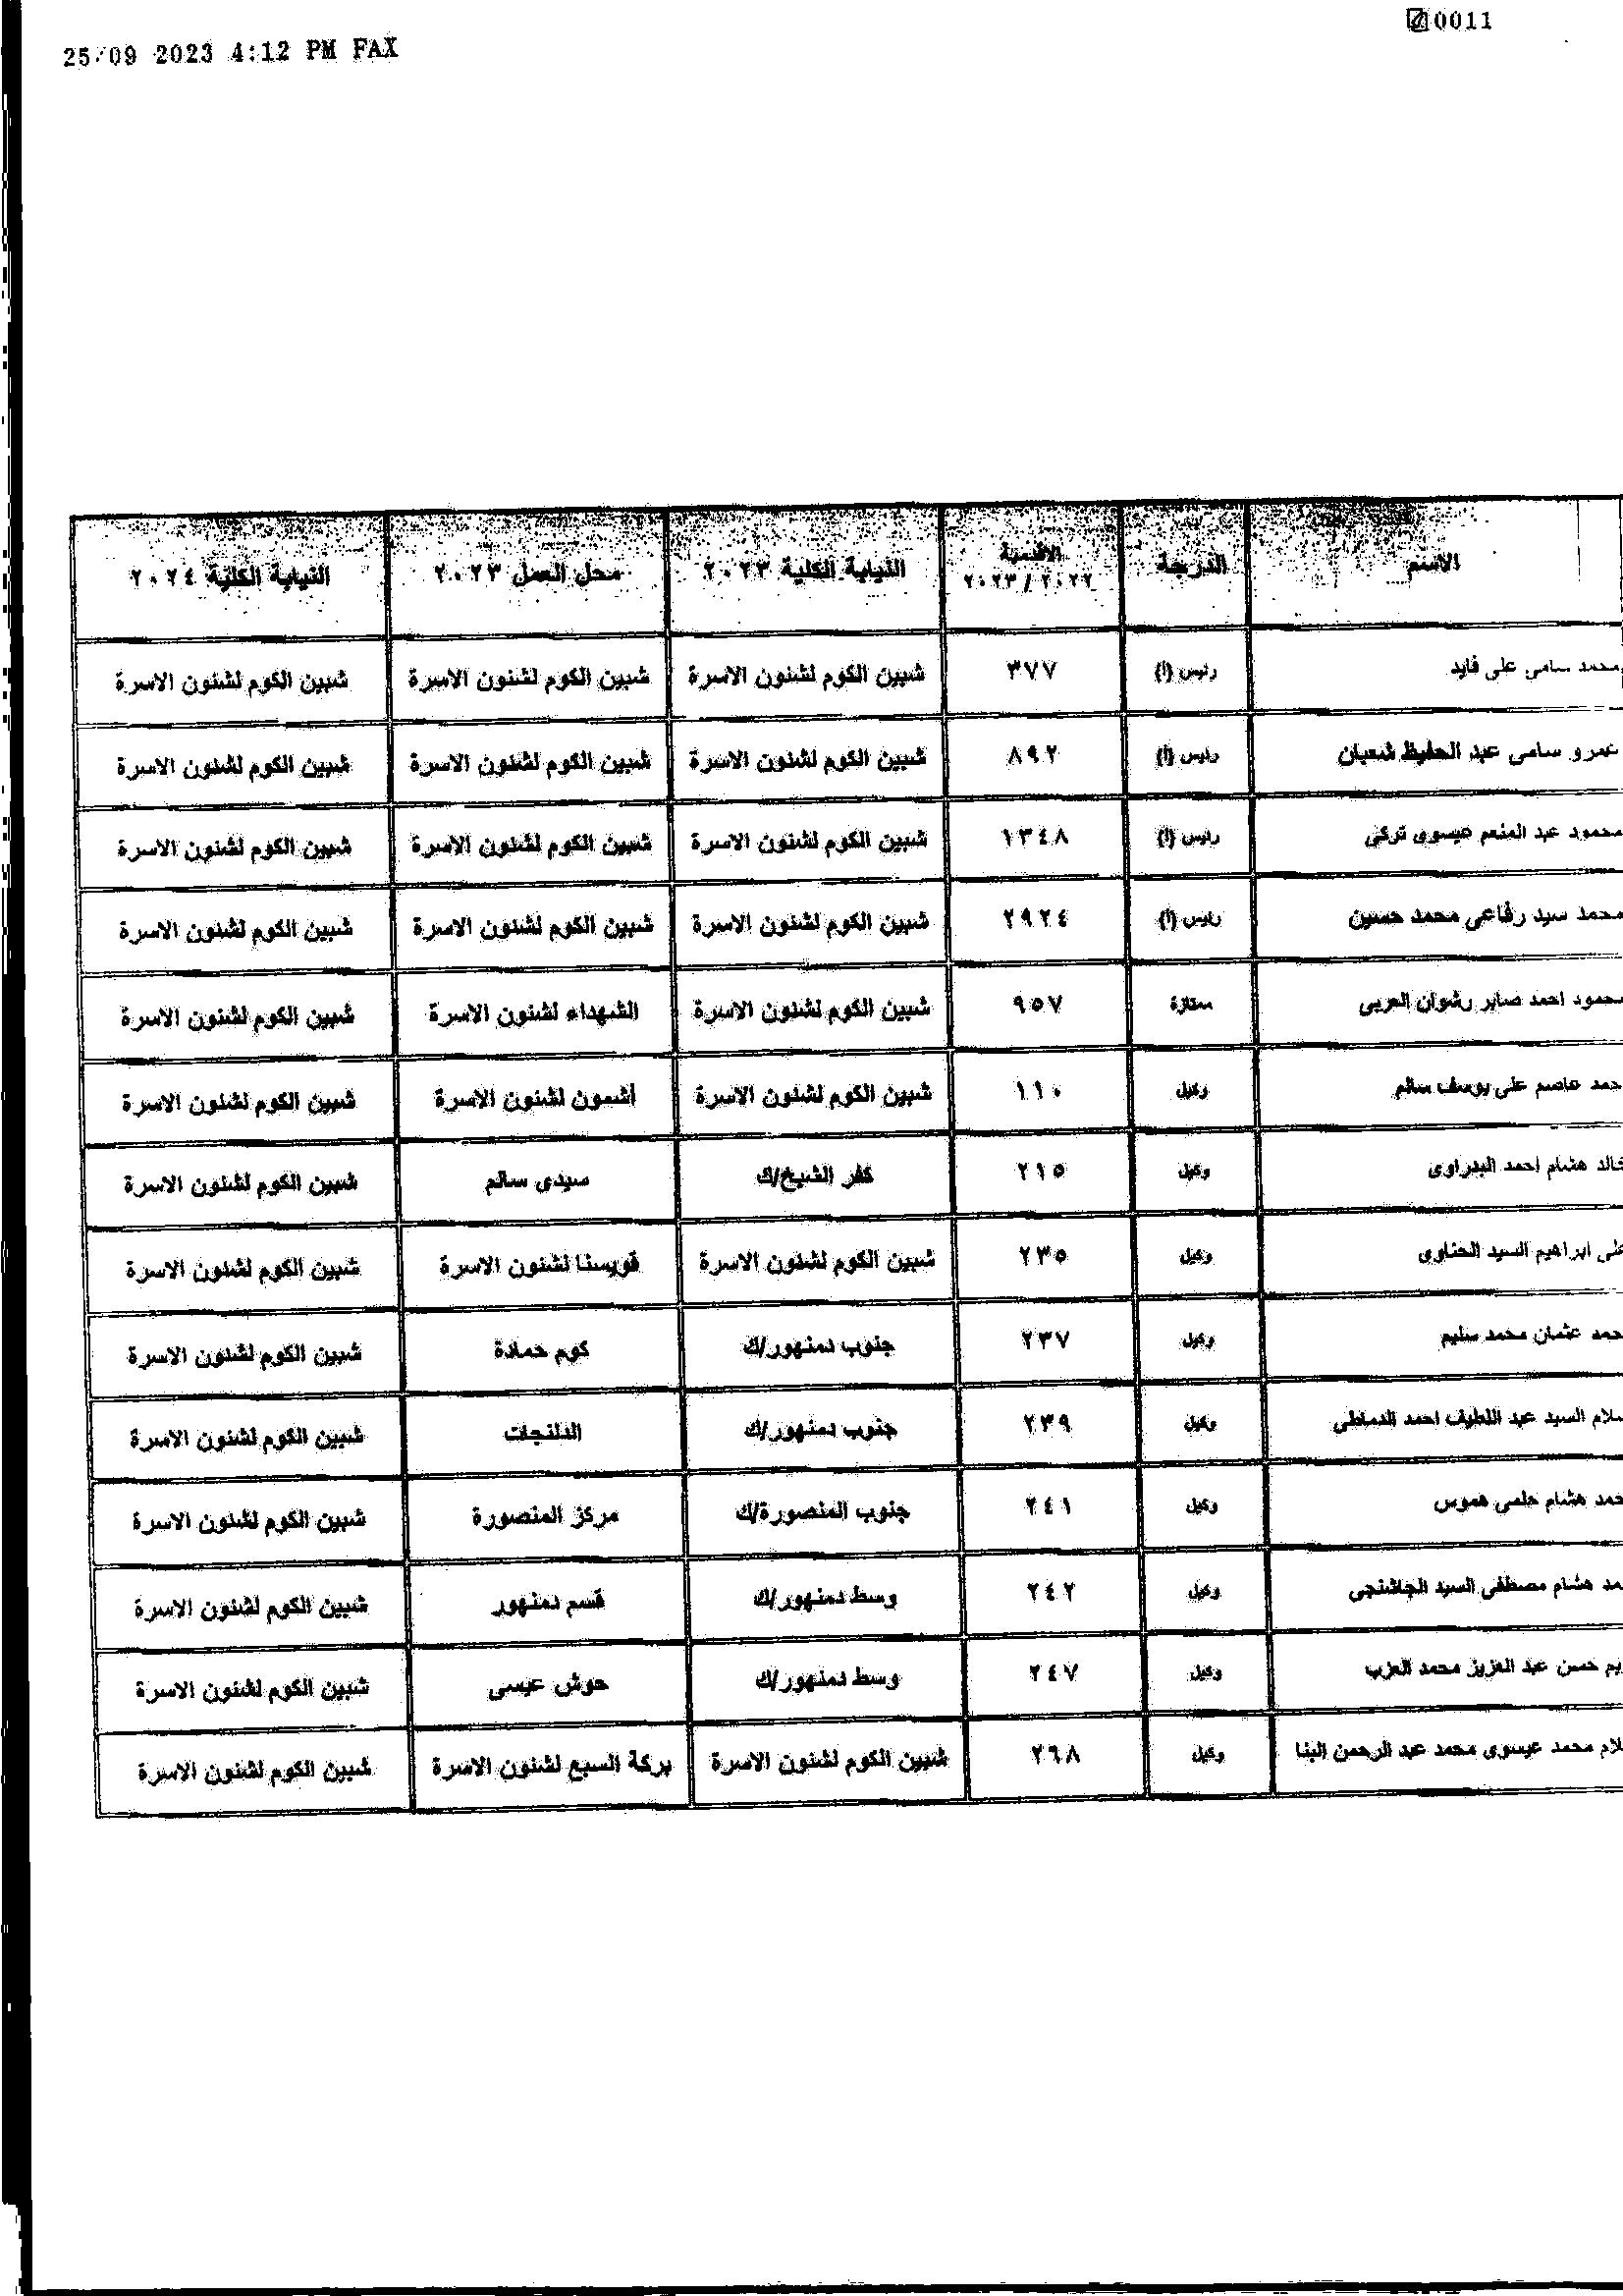 0011
25/09 2023 4:12 PM FAX
الاسم الدرجة الاقدمية ٢٠٢٣/٢٠٢٢ النيابة الكلية ٢٠٢٣ محل العمل ٢٠٢٣ النيابة الكلية ٢٠٢٤
محمد سامى على فايد رئيس (أ) ٣٧٧ شبين الكوم لشئون الاسرة شبين الكوم لشئون الاسرة شبين الكوم لشئون الاسرة
عمرو سامى عبد الحفيظ شعبان رئيس (أ) ٨٩٢ شبين الكوم لشئون الاسرة شبين الكوم لشئون الاسرة شبين الكوم لشئون الاسرة
محمود عبد المنعم عيسوى تركى رئيس (أ) ١٣٤٨ شبين الكوم لشئون الاسرة شبين الكوم لشئون الاسرة شبين الكوم لشئون الاسرة
محمد سيد رفاعى محمد حسنين رئيس (أ) ٢٩٢٤ شبين الكوم لشئون الاسرة شبين الكوم لشئون الاسرة شبين الكوم لشئون الاسرة
محمود احمد صابر رشوان العربى ممتازة ٩٥٧ شبين الكوم لشئون الاسرة الشهداء لشئون الاسرة شبين الكوم لشئون الاسرة
حمد عاصم على يوسف سالم وكيل ١١٠ شبين الكوم لشئون الاسرة أشمون لشئون الاسرة شبين الكوم لشئون الاسرة
خالد هشام احمد البدراوى وكيل ٢١٥ كفر الشيخ/ك سيدى سالم شبين الكوم لشئون الاسرة
على ابراهيم السيد الحناوى وكيل ٢٣٥ شبين الكوم لشئون الاسرة قويسنا لشئون الاسرة شبين الكوم لشئون الاسرة
حمد عثمان محمد سليم وكيل ٢٣٧ جنوب دمنهور/ك كوم حمادة شبين الكوم لشئون الاسرة
سلام السيد عبد اللطيف احمد الدماطى وكيل ٢٣٩ جنوب دمنهور/ك الدلنجات شبين الكوم لشئون الاسرة
حمد هشام حلمى هموس وكيل ٢٤١ جنوب المنصورة/ك مركز المنصورة شبين الكوم لشئون الاسرة
مد هشام مصطفى السيد الجاشنجى وكيل ٢٤٢ وسط دمنهور/ك قسم دمنهور شبين الكوم لشئون الاسرة
يم حسن عبد العزيز محمد العزب وكيل ٢٤٧ وسط دمنهور/ك حوش عيسى شبين الكوم لشئون الاسرة
لام محمد عيسوى محمد عبد الرحمن البنا وكيل ٢٦٨ شبين الكوم لشئون الاسرة بركة السبع لشئون الاسرة شبين الكوم لشئون الاسرة